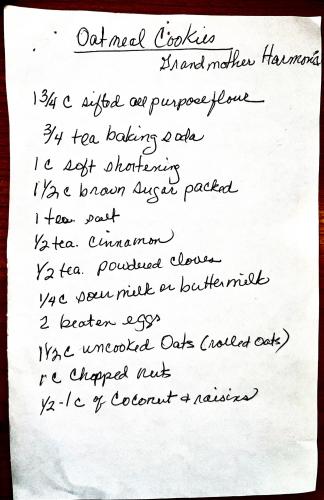 Oatmeal Cookies
Grandmother Harmon's
1 3/4 c sifted all purpose flour
3/4 tea baking soda
1 c soft shortening
1 1/2 c brown sugar packed
1 tea. salt
1/2 tea. cinnamon
1/2 tea. powdered cloves
1/4 c sour milk or buttermilk
2 beaten eggs
1 1/2 c uncooked Oats (rolled oats)
1 c chopped nuts
1/2 - 1 c of Coconut & raisins